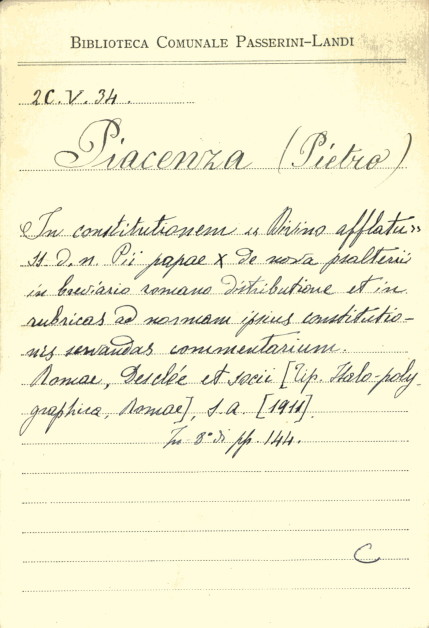 BIBLIOTECA COMUNALE PASSERINI-LANDI
2C.V.34.
Piacenza (Pietro)
In constitutionem « Divino afflatu »
SS d. n. Pii papae X de nova psalterii
in breviario romano distributione et in
rubricas ad normam ipsius constitutio-
nis servandas commentarium.
Romae, Desclée et socii [Tip. Italo-poly-
graphica, Romae], s.a. [1911].
In 8° di pp. 144.
C